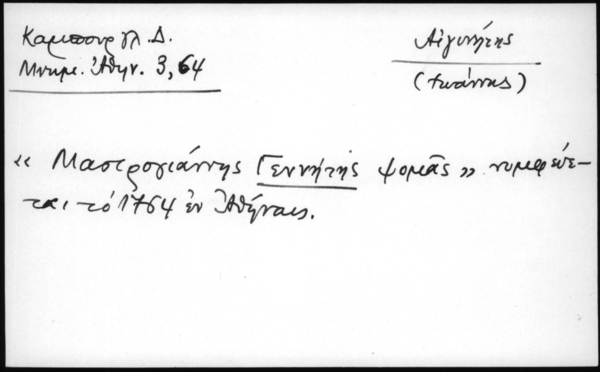 Καμπουρογλ. Δ.
Μνημ. Ἀθην. 3, 64
Αἰγινήτης
(Ἰωάννης)
« Μαστρογιάννης Γεννήτης ψωμᾶς » νυμφεύε-
ται τό 1764 ἐν Ἀθήναις.